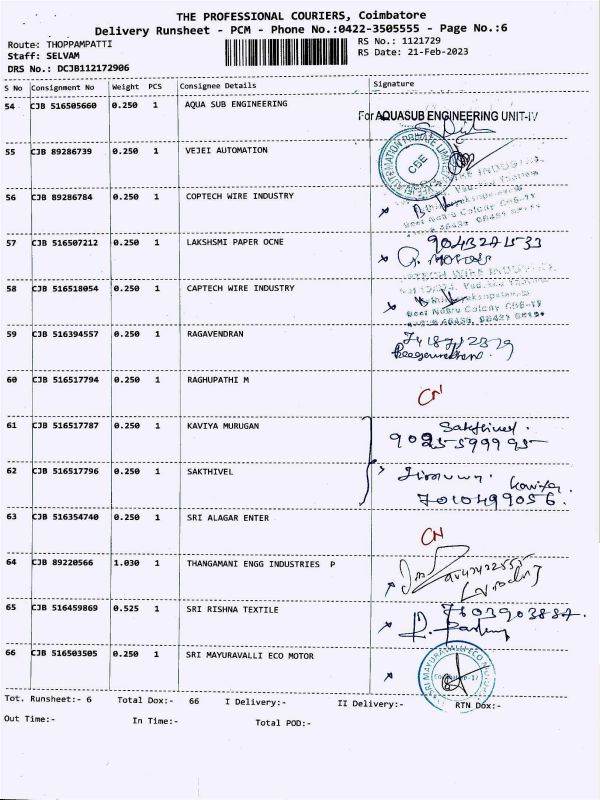 THE PROFESSIONAL COURIERS, Coimbatore
Delivery Runsheet - PCM - Phone No.:0422-3505555 - Page No.:6
Route: THOPPAMPATTI RS No.: 1121729
Staff: SELVAM RS Date: 21-Feb-2023
DRS No.: DCJB112172906
S No Consignment No Weight PCS Consignee Details Signature
54 CJB 516505660 0.250 1 AQUA SUB ENGINEERING
For AQUASUB ENGINEERING UNIT-IV
55 CJB 89286739 0.250 1 VEJEI AUTOMATION
CBE
56 CJB 89286784 0.250 1 COPTECH WIRE INDUSTRY
57 CJB 516507212 0.250 1 LAKSHSMI PAPER OCNE
58 CJB 516518054 0.250 1 CAPTECH WIRE INDUSTRY
59 CJB 516394557 0.250 1 RAGAVENDRAN
60 CJB 516517794 0.250 1 RAGHUPATHI M CN
61 CJB 516517787 0.250 1 KAVIYA MURUGAN Sakthivel.
62 CJB 516517796 0.250 1 SAKTHIVEL
Kaviya.
7010499056.
63 CJB 516354740 0.250 1 SRI ALAGAR ENTER CN
64 CJB 89220566 1.030 1 THANGAMANI ENGG INDUSTRIES P
65 CJB 516459869 0.525 1 SRI RISHNA TEXTILE 7603903887.
66 CJB 516503505 0.250 1 SRI MAYURAVALLI ECO MOTOR
Tot. Runsheet:- 6 Total Dox:- 66 I Delivery:- II Delivery:- RTN Dox:-
Out Time:- In Time:- Total POD:-